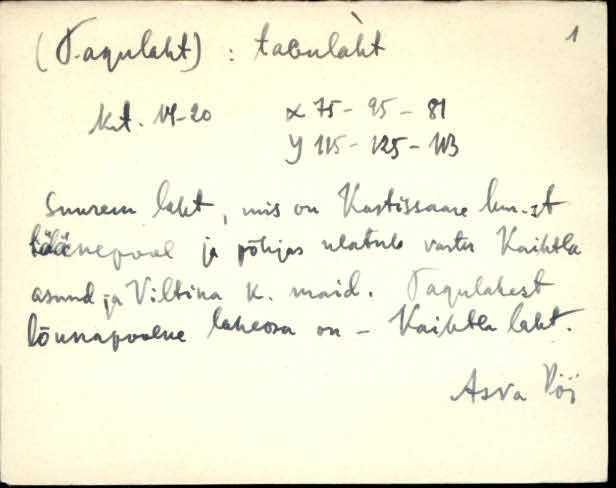 (Tagulaht) : tagulàht 1
Krt. 14-20 X 75 - 95 - 81
Y 115 - 125 - 113
Suurem laht, mis on Kastissaare
läänepool ja põhjas ulatub vastu Kaihtla
asund ja Viltina k. maid. Tagulahest
lõunapoolne laheosa on - Kaihtla laht.
Asva Pöi